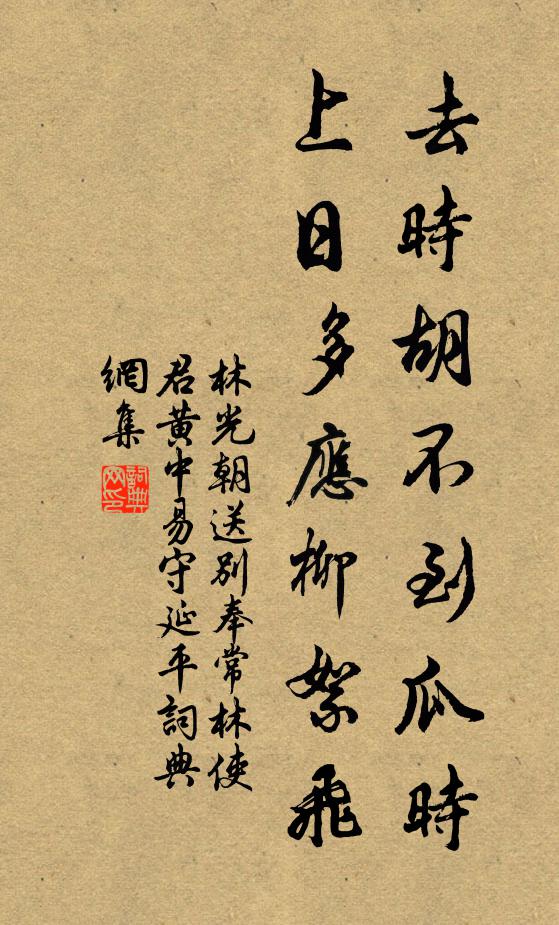 去時胡不到瓜時
上日多應柳絮飛
林光朝送別奉常林使
君黃中易守延平詞典
網集
詞典
网印